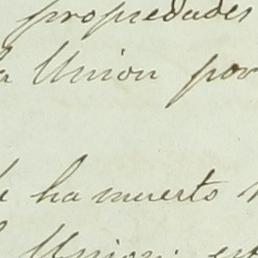 propiedades
a Union por
ha muerto
Union. est